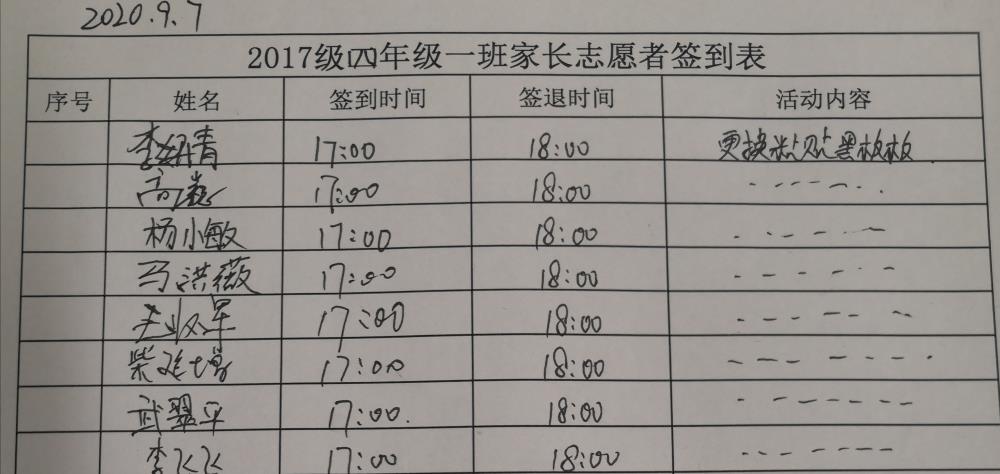 2020.9.7
2017级四年级一班家长志愿者签到表
序号 姓名 签到时间 签退时间 活动内容
李娟青 17:00 18:00 更换粘贴黑板板
高 17:00 18:00
杨小敏 17:00 18:00
马洪薇 17:00 18:00
军 17:00 18:00
柴 增 17:00 18:00
武翠平 17:00. 18:00
李飞飞 17:00 18:00